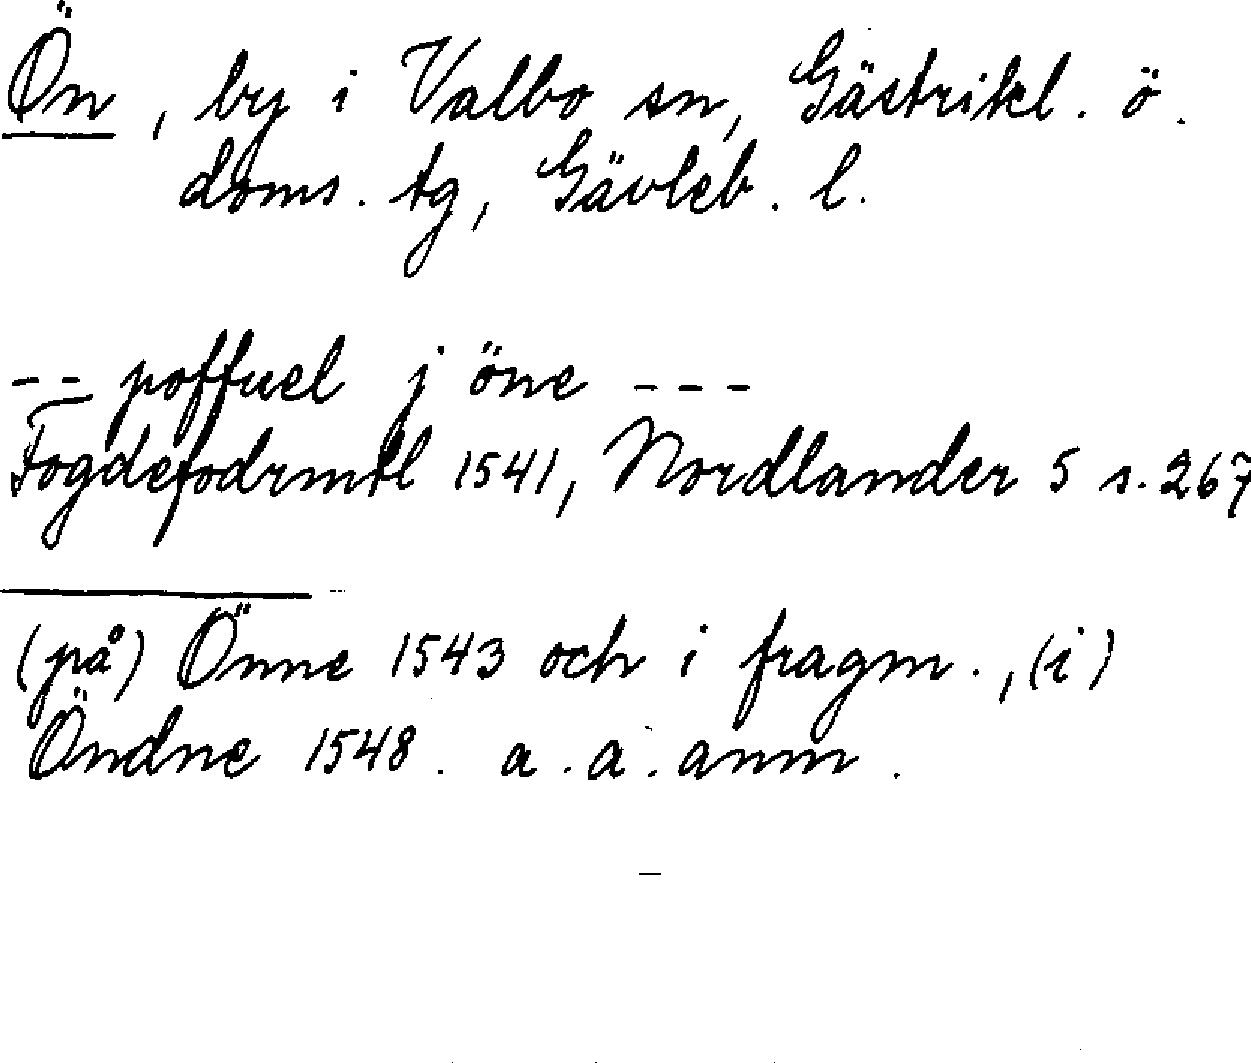 Ön, by i Valbo sn, Gästrikl. ö.
doms. tg, Gävleb. l.
-- poffuel j öne ---
Fogdefodrmtl 1541, Nordlander 5 s. 267
(på) Önne 1543 och i fragm., (i)
Öndne 1548. a. a. anm.